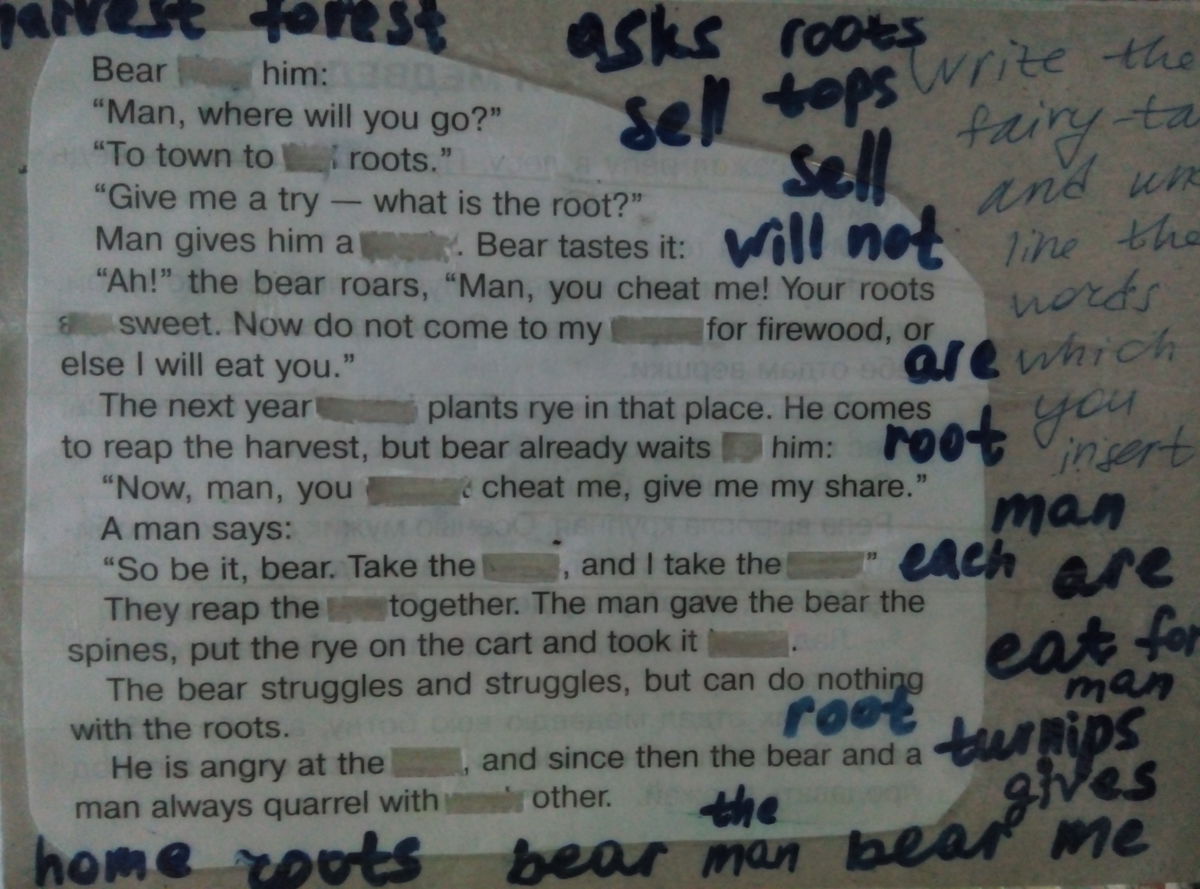 harvest forest asks roots
sell tops
sell
will not
Write the
fairy-ta
and un
line the
words
which
you
insert
Bear him:
“Man, where will you go?”
“To town to roots.”
“Give me a try — what is the root?”
Man gives him a . Bear tastes it:
“Ah!” the bear roars, “Man, you cheat me! Your roots
sweet. Now do not come to my for firewood, or
else I will eat you.”
The next year plants rye in that place. He comes
to reap the harvest, but bear already waits him:
“Now, man, you cheat me, give me my share.”
A man says:
“So be it, bear. Take the , and I take the ”
They reap the together. The man gave the bear the
spines, put the rye on the cart and took it .
The bear struggles and struggles, but can do nothing
with the roots.
He is angry at the , and since then the bear and a
man always quarrel with other.
are
root
man
each are
eat for
man
root
turnips
gives
the
home roots bear man bear me